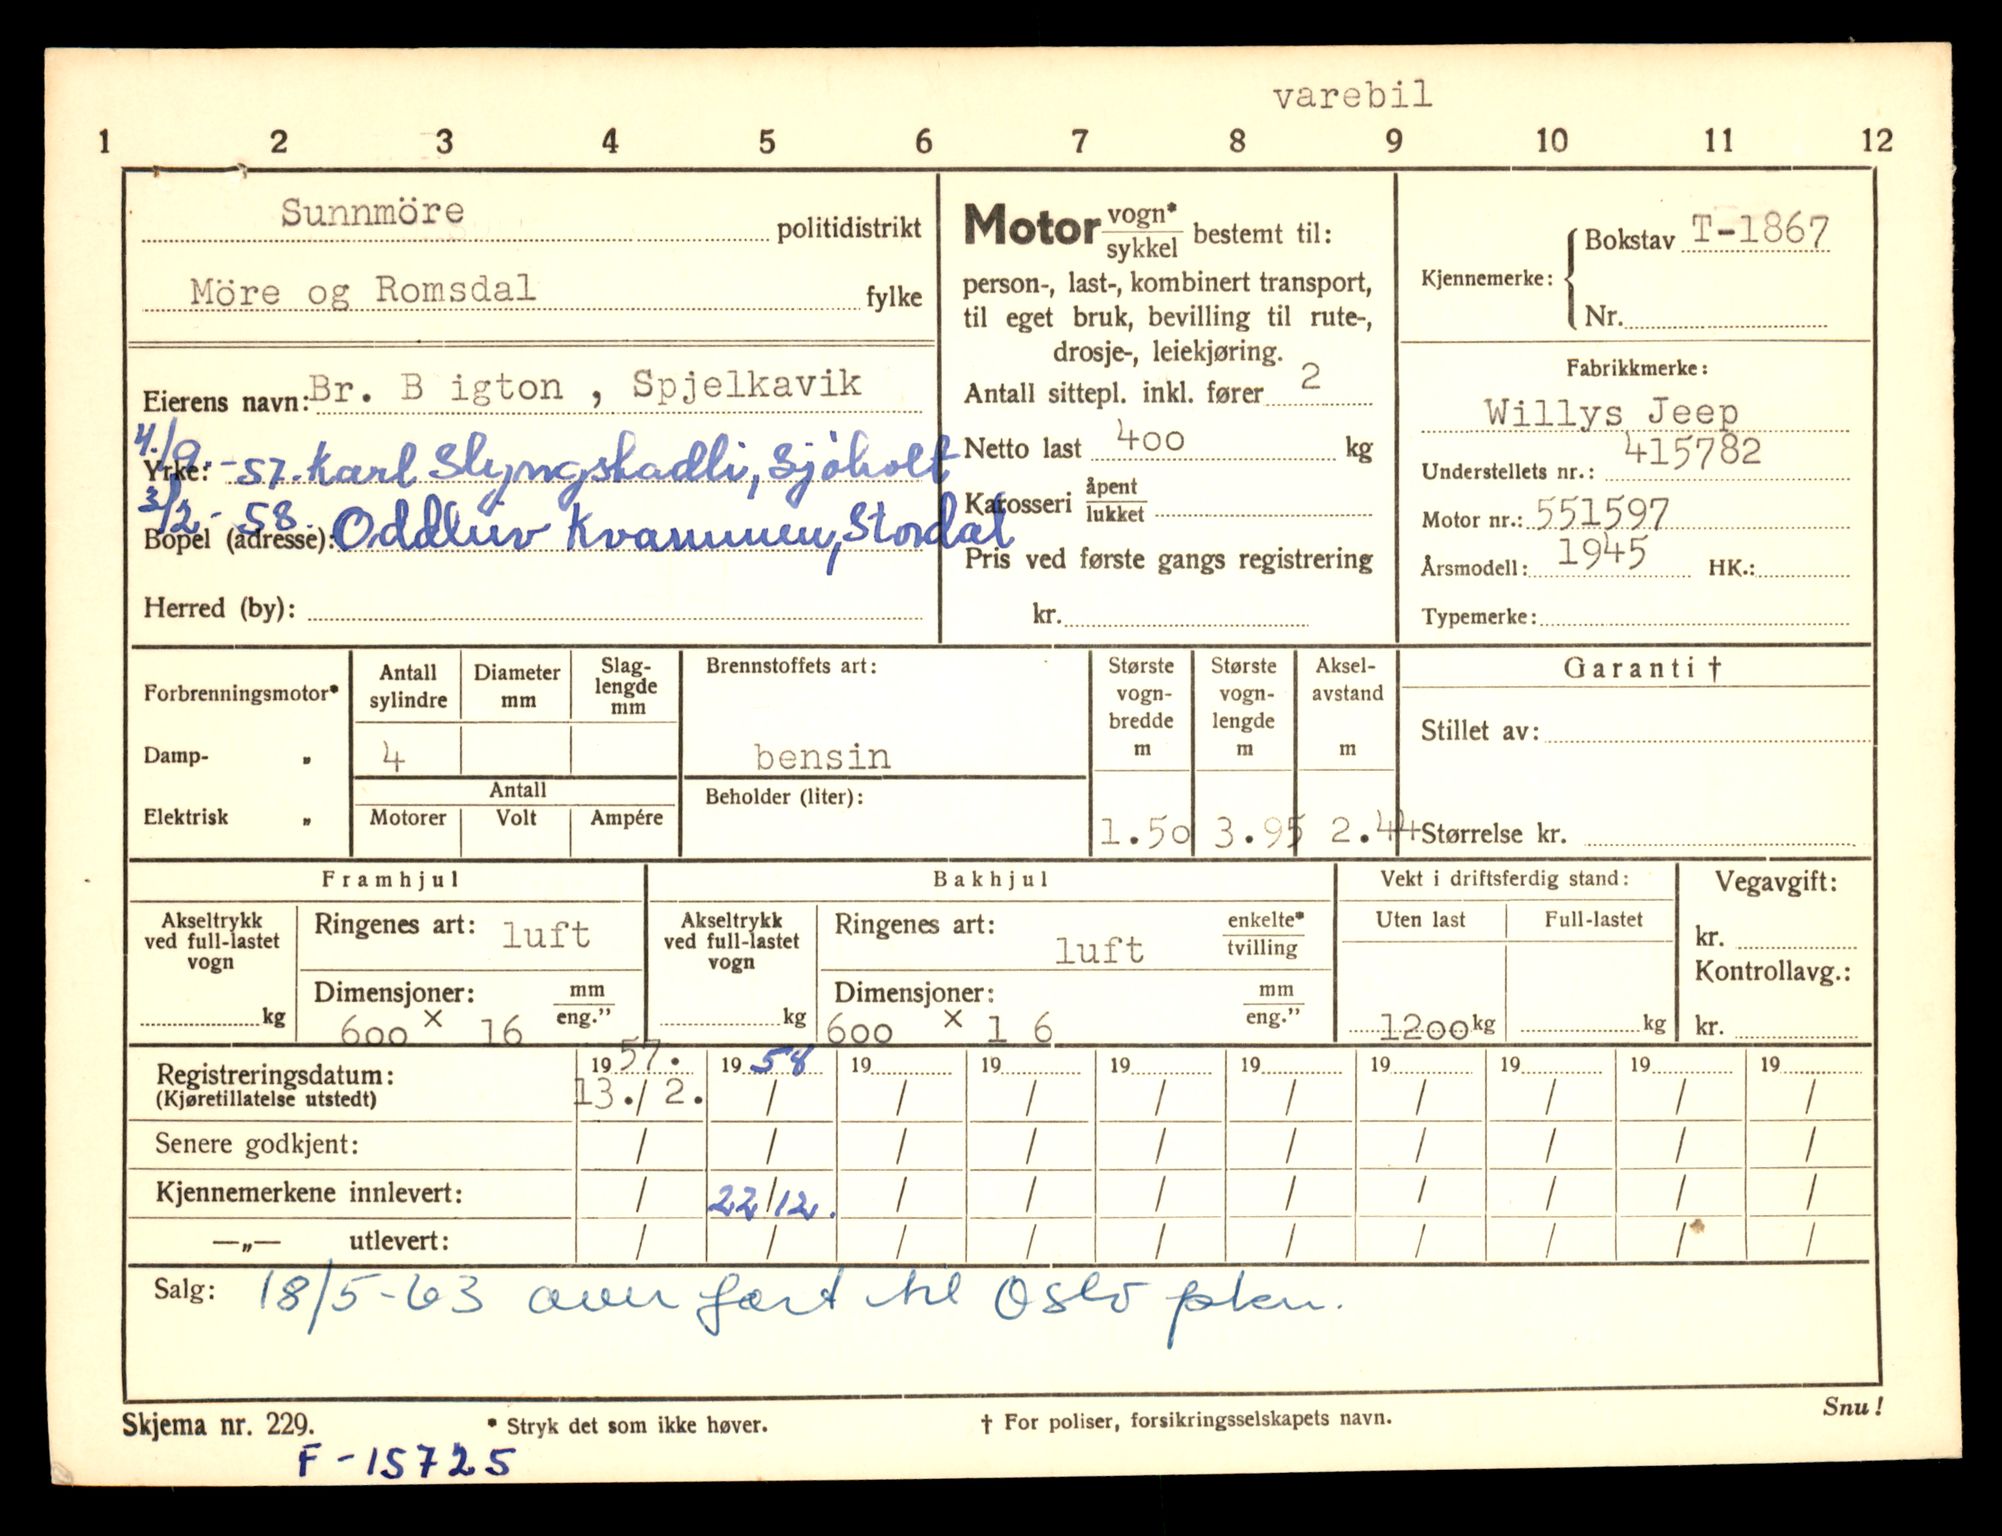 varebil
1 2 3 4 5 6 7 8 9 10 11 12
Sunnmöre politidistrikt
Möre og Romsdal fylke
Eierens navn: Br. B igton , Spjelkavik
Yrke: 4./9.-57. Karl Slyngstadli, Sjöholt
Bopel (adresse): 3/2-58. Oddluv Kvammen, Stordal
Herred (by):
Motor vogn* / sykkel bestemt til:
person-, last-, kombinert transport,
til eget bruk, bevilling til rute-,
drosje-, leiekjøring.
Antall sittepl. inkl. fører 2
Netto last 400 kg
Karosseri åpent / lukket
Pris ved første gangs registrering
kr.
Kjennemerke: Bokstav T-1867
Nr.
Fabrikkmerke:
Willys Jeep
Understellets nr.: 415782
Motor nr.: 551597
Årsmodell: 1945 HK.:
Typemerke:
Forbrenningsmotor*
Damp- „
Elektrisk „
Antall sylindre Diameter mm Slag-lengde mm
4
Antall
Motorer Volt Ampére
Brennstoffets art:
bensin
Beholder (liter):
Største vogn-bredde m Største vogn-lengde m Aksel-avstand m
1.50 3.95 2.44
Garanti †
Stillet av:
Størrelse kr.
Framhjul
Akseltrykk ved full-lastet vogn
kg
Ringenes art: luft
Dimensjoner: mm / eng."
600 x 16
Bakhjul
Akseltrykk ved full-lastet vogn
kg
Ringenes art: luft enkelte* / tvilling
Dimensjoner: mm / eng."
600 x 1 6
Vekt i driftsferdig stand:
Uten last Full-lastet
1200 kg kg
Vegavgift:
kr.
Kontrollavg.:
kr.
Registreringsdatum: 19 57. 19 58 19 19 19 19 19 19 19 19
(Kjøretillatelse utstedt) 13./2. / / / / / / / / /
Senere godkjent: / / / / / / / / / /
Kjennemerkene innlevert: / 22/12. / / / / / / / /
—„— utlevert: / / / / / / / / / /
Salg: 18/5-63 overført til Oslo pkm.
Skjema nr. 229. * Stryk det som ikke høver. † For poliser, forsikringsselskapets navn. Snu!
F-15725